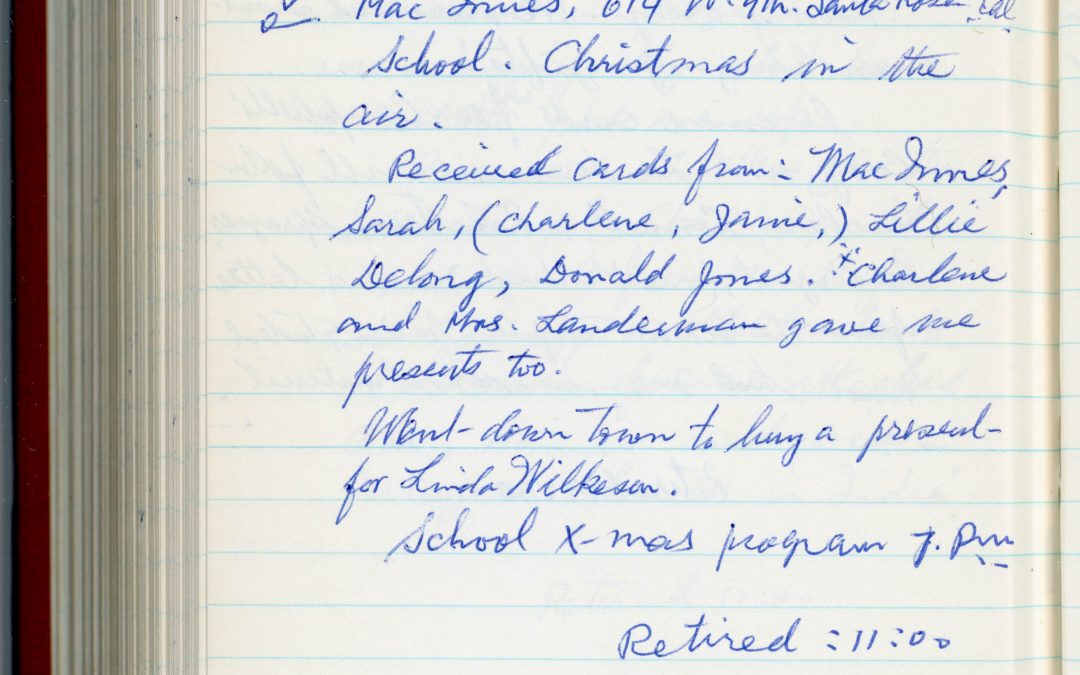 Mac Innes, 614 W. 9th. Santa Rosa Cal
School. Christmas in the
air.
Received cards from: Mac Innes,
Sarah, (Charlene, Jamie,) Lillie
Delong, Donald Jones. Charlene
and Mrs. Landerman gave me
presents too.
Went down Town to buy a present
for Linda Wilkeson.
School X-mas program 7. Pm
Retired :11:00